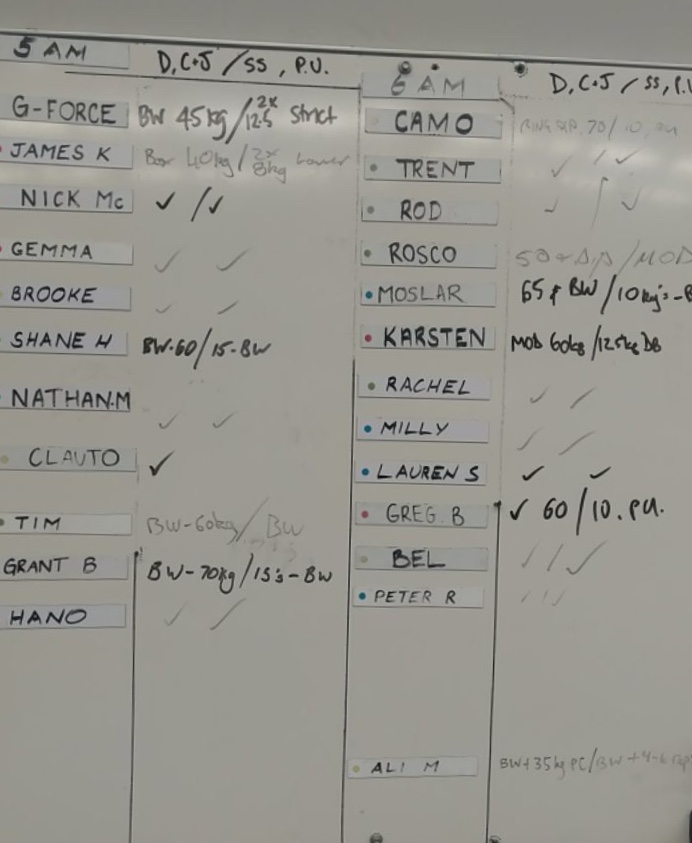 5 AM
D, C+J / SS, P.U.
G-FORCE BW 45kg / 2x 12.5 Strict
JAMES K Box 40kg / 2x 8kg
NICK Mc ✓ / ✓
GEMMA ✓ ✓
BROOKE ✓ ✓
SHANE H BW-60 / 15-BW
NATHAN.M ✓ ✓
CLAUTO ✓
TIM BW-60kg / BW
GRANT B BW-70kg / 15's-BW
HANO ✓ ✓
6 AM
D, C+J / SS, P.U
CAMO 70 / 10, P.U
TRENT ✓ / ✓
ROD ✓ / ✓
ROSCO 50 / MOD
MOSLAR 65 & BW / 10kg's-B
KARSTEN MOD 60kg / 12.5kg DB
RACHEL ✓ ✓
MILLY ✓ ✓
LAUREN S ✓ ✓
GREG. B ✓ 60 / 10. P.U.
BEL ✓ / ✓
PETER R ✓ ✓ ✓
ALI M BW+35kg PC / BW +4-6 rep